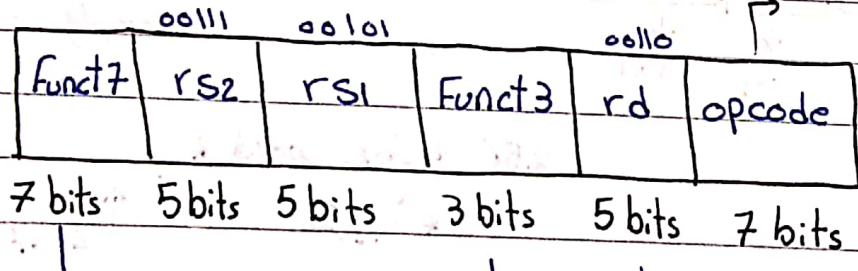 00111 00101 00110
Funct7 rs2 rs1 Funct3 rd opcode
7 bits 5 bits 5 bits 3 bits 5 bits 7 bits